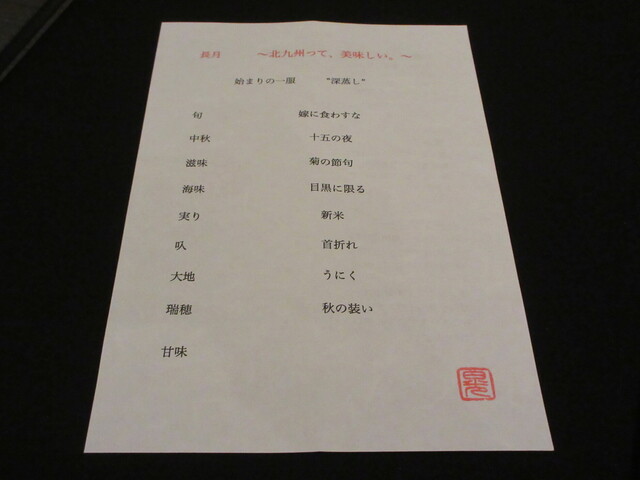 長月 ~北九州って、美味しい。~
始まりの一服 "深蒸し"
旬 嫁に食わすな
中秋 十五の夜
滋味 菊の節句
海味 目黒に限る
実り 新米
叺 首折れ
大地 うにく
瑞穂 秋の装い
甘味